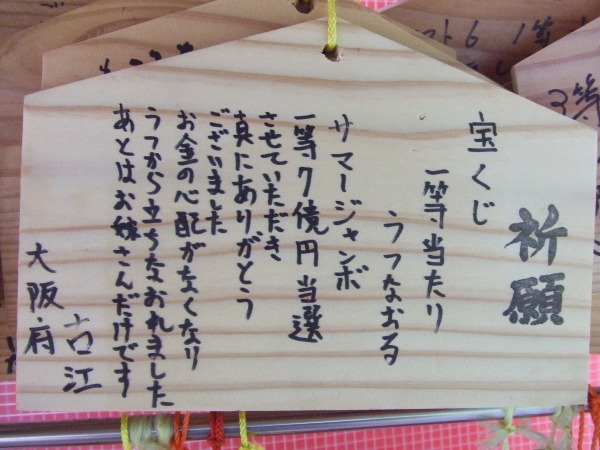 祈願
宝くじ
一等当たり
うつなおる
サマージャンボ
一等7億円当選
させていただき
真にありがとう
ございました
お金の心配がなくなり
うつから立ちなおれました
あとはお嫁さんだけです
大阪府
古江
ト6 1等
3等